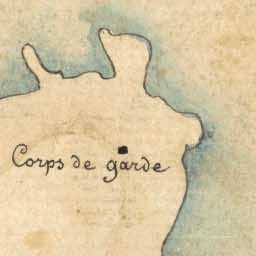 Corps de garde